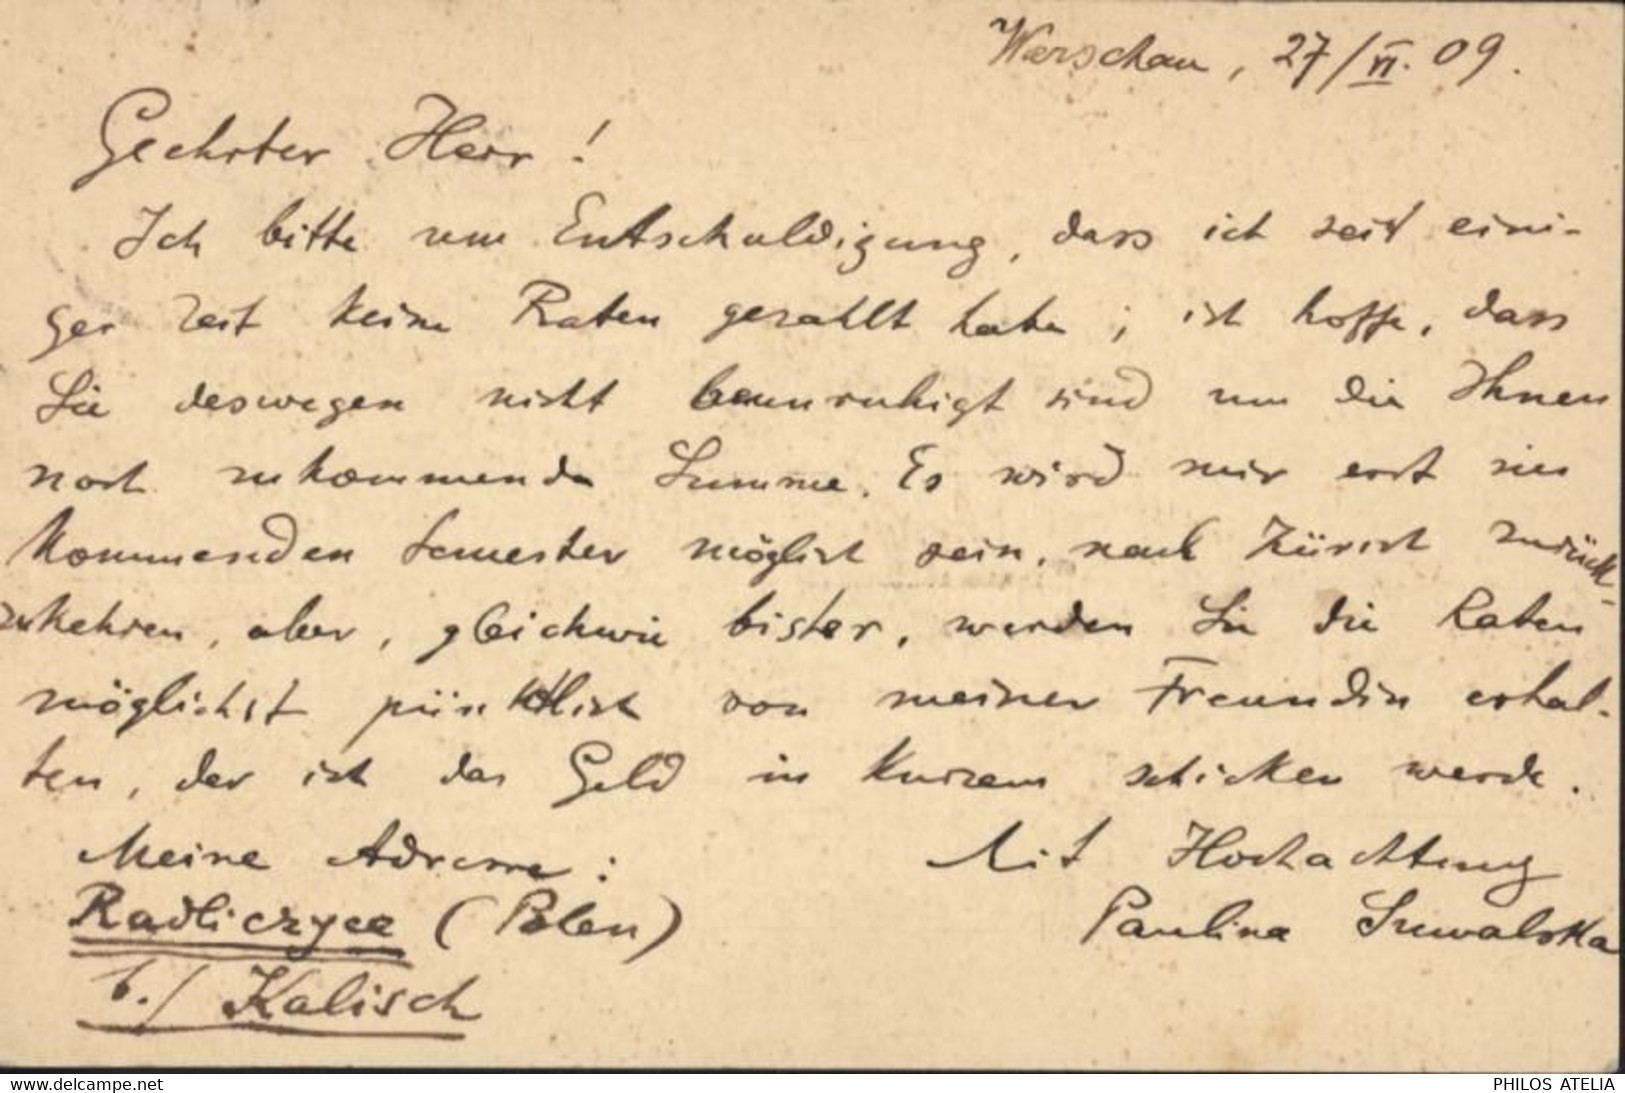 Warschau, 27/VI. 09.
Geehrter Herr!
Ich bitte um Entschuldigung, dass ich seit eini-
ger Zeit keine Raten gezahlt habe; ich hoffe, dass
Sie deswegen nicht beunruhigt sind um die Ihnen
noch zukommende Summe. Es wird mir erst im
kommenden Semester möglich sein, nach Zürich zurück-
zukehren, aber, gleichwie bisher, werden Sie die Raten
möglichst pünktlich von meiner Freundin erhal-
ten, der ich das Geld in Kurzem schicken werde.
Meine Adresse: Mit Hochachtung
Radliczyce (Polen) Paulina Suwalska
b./ Kalisch
www.delcampe.net PHILOS ATELIA